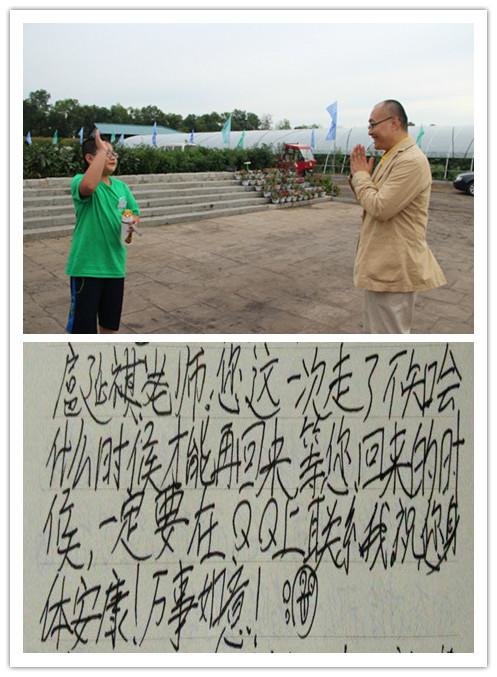 扈延祺老师,您这一次走了不知啥
什么时候才能再回来,等您回来的时
候,一定要在QQ上联系我,祝您身
体安康!万事如意!